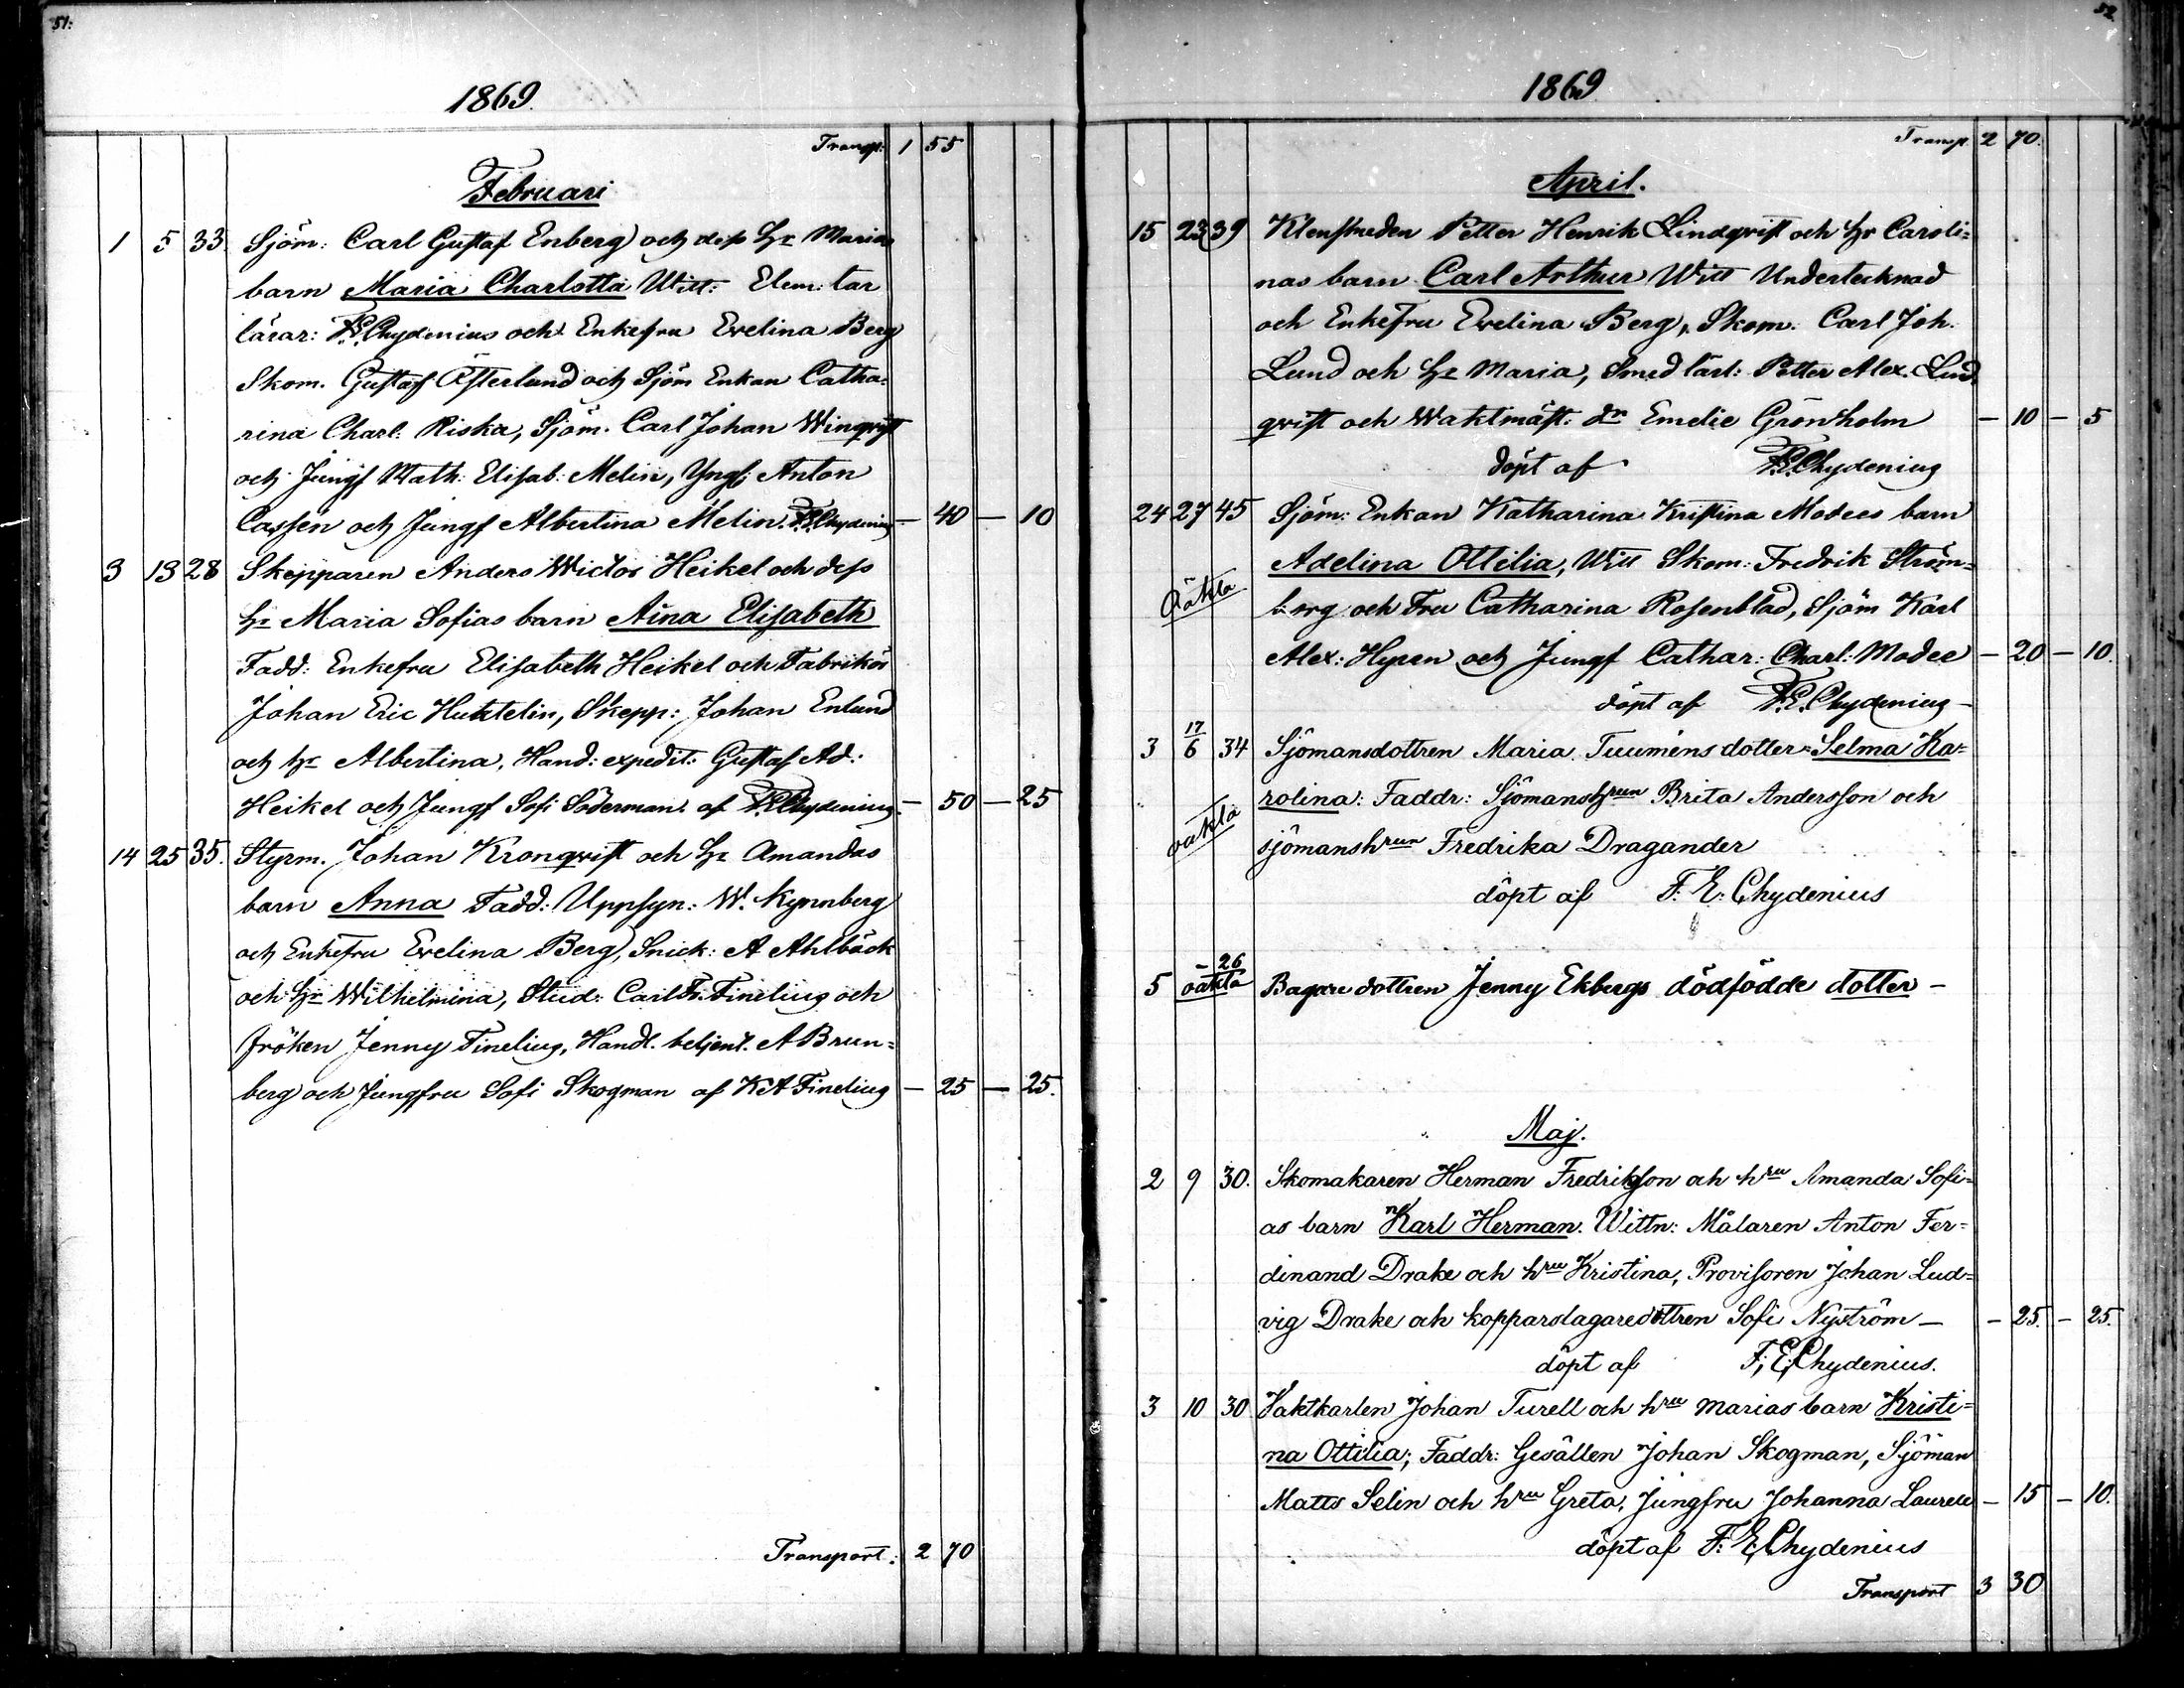 51:
1869.
Transp: 1 55
Februari
1 5 33. Sjöm: Carl Gustaf Enberg och dess hr Maria
barn Maria Charlotta Witt: Elem: tar
lärar: F.E. Chydenius och Enkefru Evelina Berg
Skom. Gustaf Österlund och Sjöm Enkan Catha-
rina Charl: Riska, Sjöm. Carl Johan Winqvist
och Jungf Math: Elisab: Melin, Yngl: Anton
Cassen och Jungf Albertina Melin. F.E. Chydenius — 40 — 10
3 13 28 Skepparen Anders Wictor Heikel och dess
hr Maria Sofias barn Aina Elisabeth
Fadd: Enkefru Elisabeth Heikel och Fabrikör
Johan Eric Huktelin, Skepp: Johan Enlund
och hr Albertina, Hand: expedit: Gustaf Ad:
Heikel och Jungf Sofi Söderman. af F.E. Chydenius. — 50 — 25
14 25 35. Styrm. Johan Kronqvist och hr Amandas
barn Anna Fadd: Uppsyn: W. Kynnberg
och Enkefru Evelina Berg, Snick: A Ahlbäck
och hr Wilhelmina, Stud: Carl Fr. Finelius och
fröken Jenny Finelius, Handl. betjent. A Brun=
berg och Jungfru Sofi Skogman af K A Finelius — 25 — 25.
Transport: 2 70
52.
1869
Transp. 2 70.
April.
15 23 39 Klensmeden Petter Henrik Lindqvist och hr Caroli=
nas barn Carl Arthur Witt Undertecknad
och Enkefru Evelina Berg, Skom. Carl Joh.
Lund och hr Maria, Smed lärl: Petter Alex. Lind
qvist och Waktmäst: dr Emelie Grönholm — 10 — 5
döpt af F.E. Chydenius
24 27 45 Sjöm: Enkan Katharina Kristina Modees barn
Adelina Ottilia, Witt Skom: Fredrik Ström=
Oäkta berg och Fru Catharina Rosenblad, Sjöm Karl
Alex: Hyren och Jungf Cathar: Charl: Modee — 20 — 10.
döpt af F.E. Chydenius —
3 17/6 34 Sjömansdottren Maria Tuuméns dotter Selma Ka=
rolina: Faddr: Sjömanshrun Brita Andersson och
oäkta sjömanshrun Fredrika Dragander
döpt af F: E: Chydenius
5 — 26 oäkta Bagaredottren Jenny Ekbergs dödfödde dotter —
Maj.
2 9 30. Skomakaren Herman Fredrikson och hru Amanda Sofi=
as barn Karl Herman. Wittn: Målaren Anton Fer=
dinand Drake och hru Kristina, Provisoren Johan Lud=
vig Drake och kopparslagaredottren Sofi Nyström — — 25. — 25.
döpt af F; E; Chydenius.
3 10 30 Vaktkarlen Johan Turell och hru Marias barn Kristi=
na Ottilia; Faddr: Gesällen Johan Skogman, Sjöman
Matts Selin och hru Greta, Jungfru Johanna Laurell — 15 — 10.
döpt af F: E; Chydenius
Transport 3 30